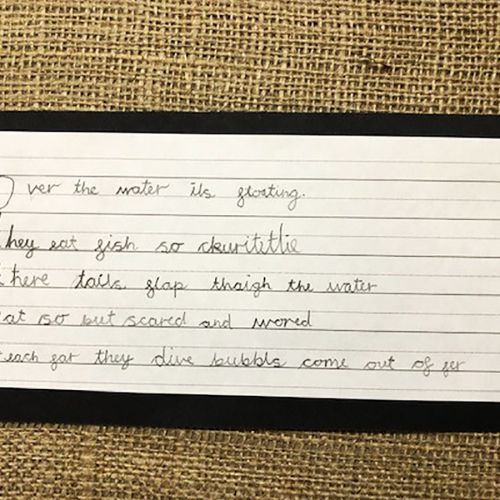 Over the water its floating.
They eat fish so ckurititlie
there tails flap thaigh the water
at so but scared and wored
each far they dive bubbls come out of fer